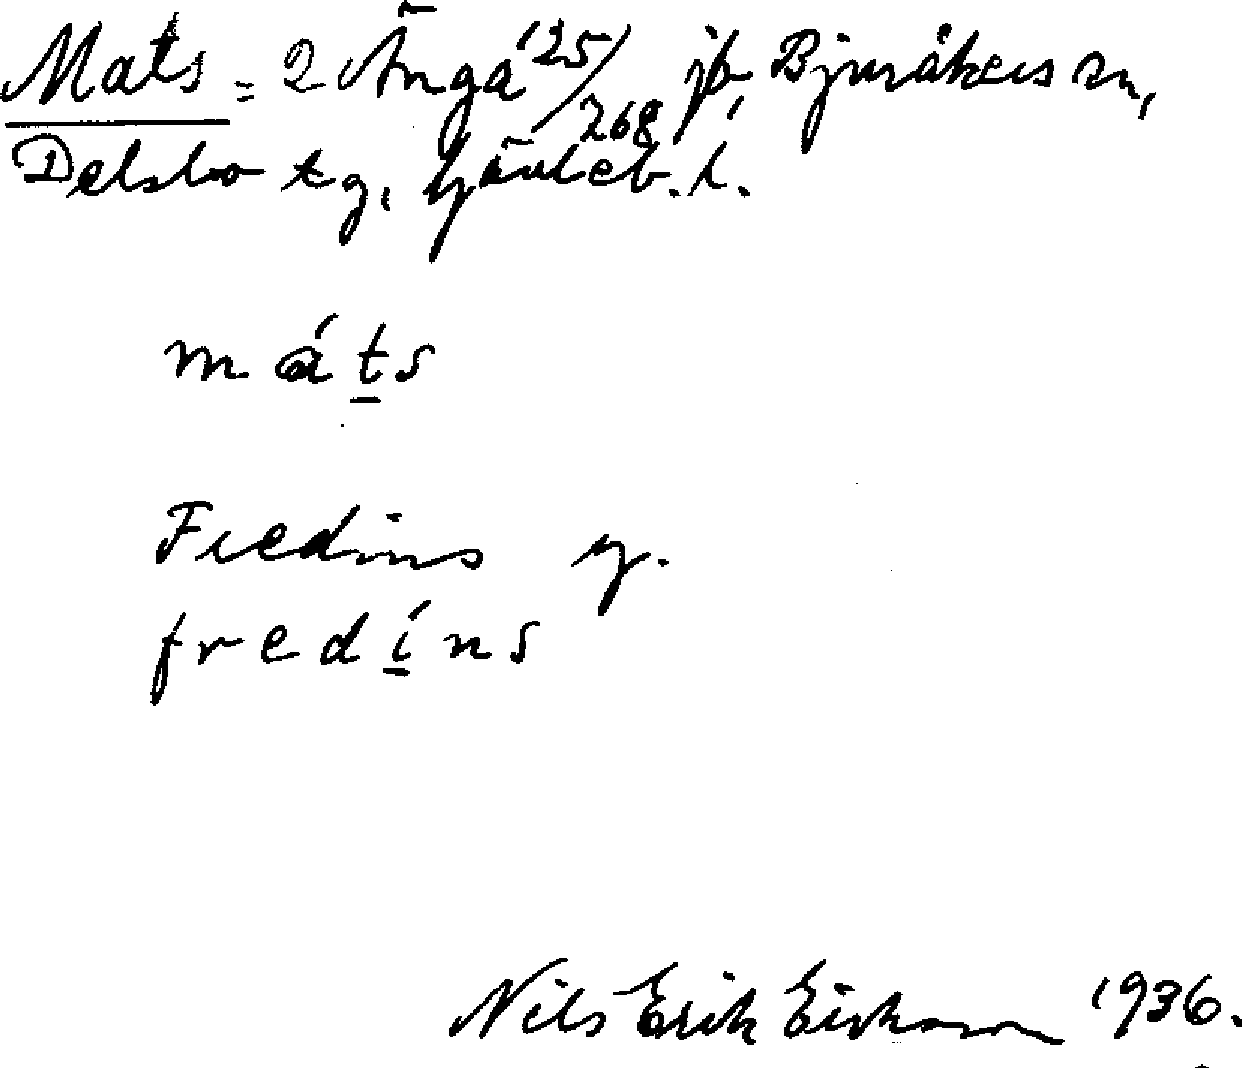 Mats = 2 Änga 125/268 jb, Bjuråkers sn,
Delsbo tg, Gävleb. l.
máts
Fredins g.
fredíns
Nils Erik Erikson 1936.